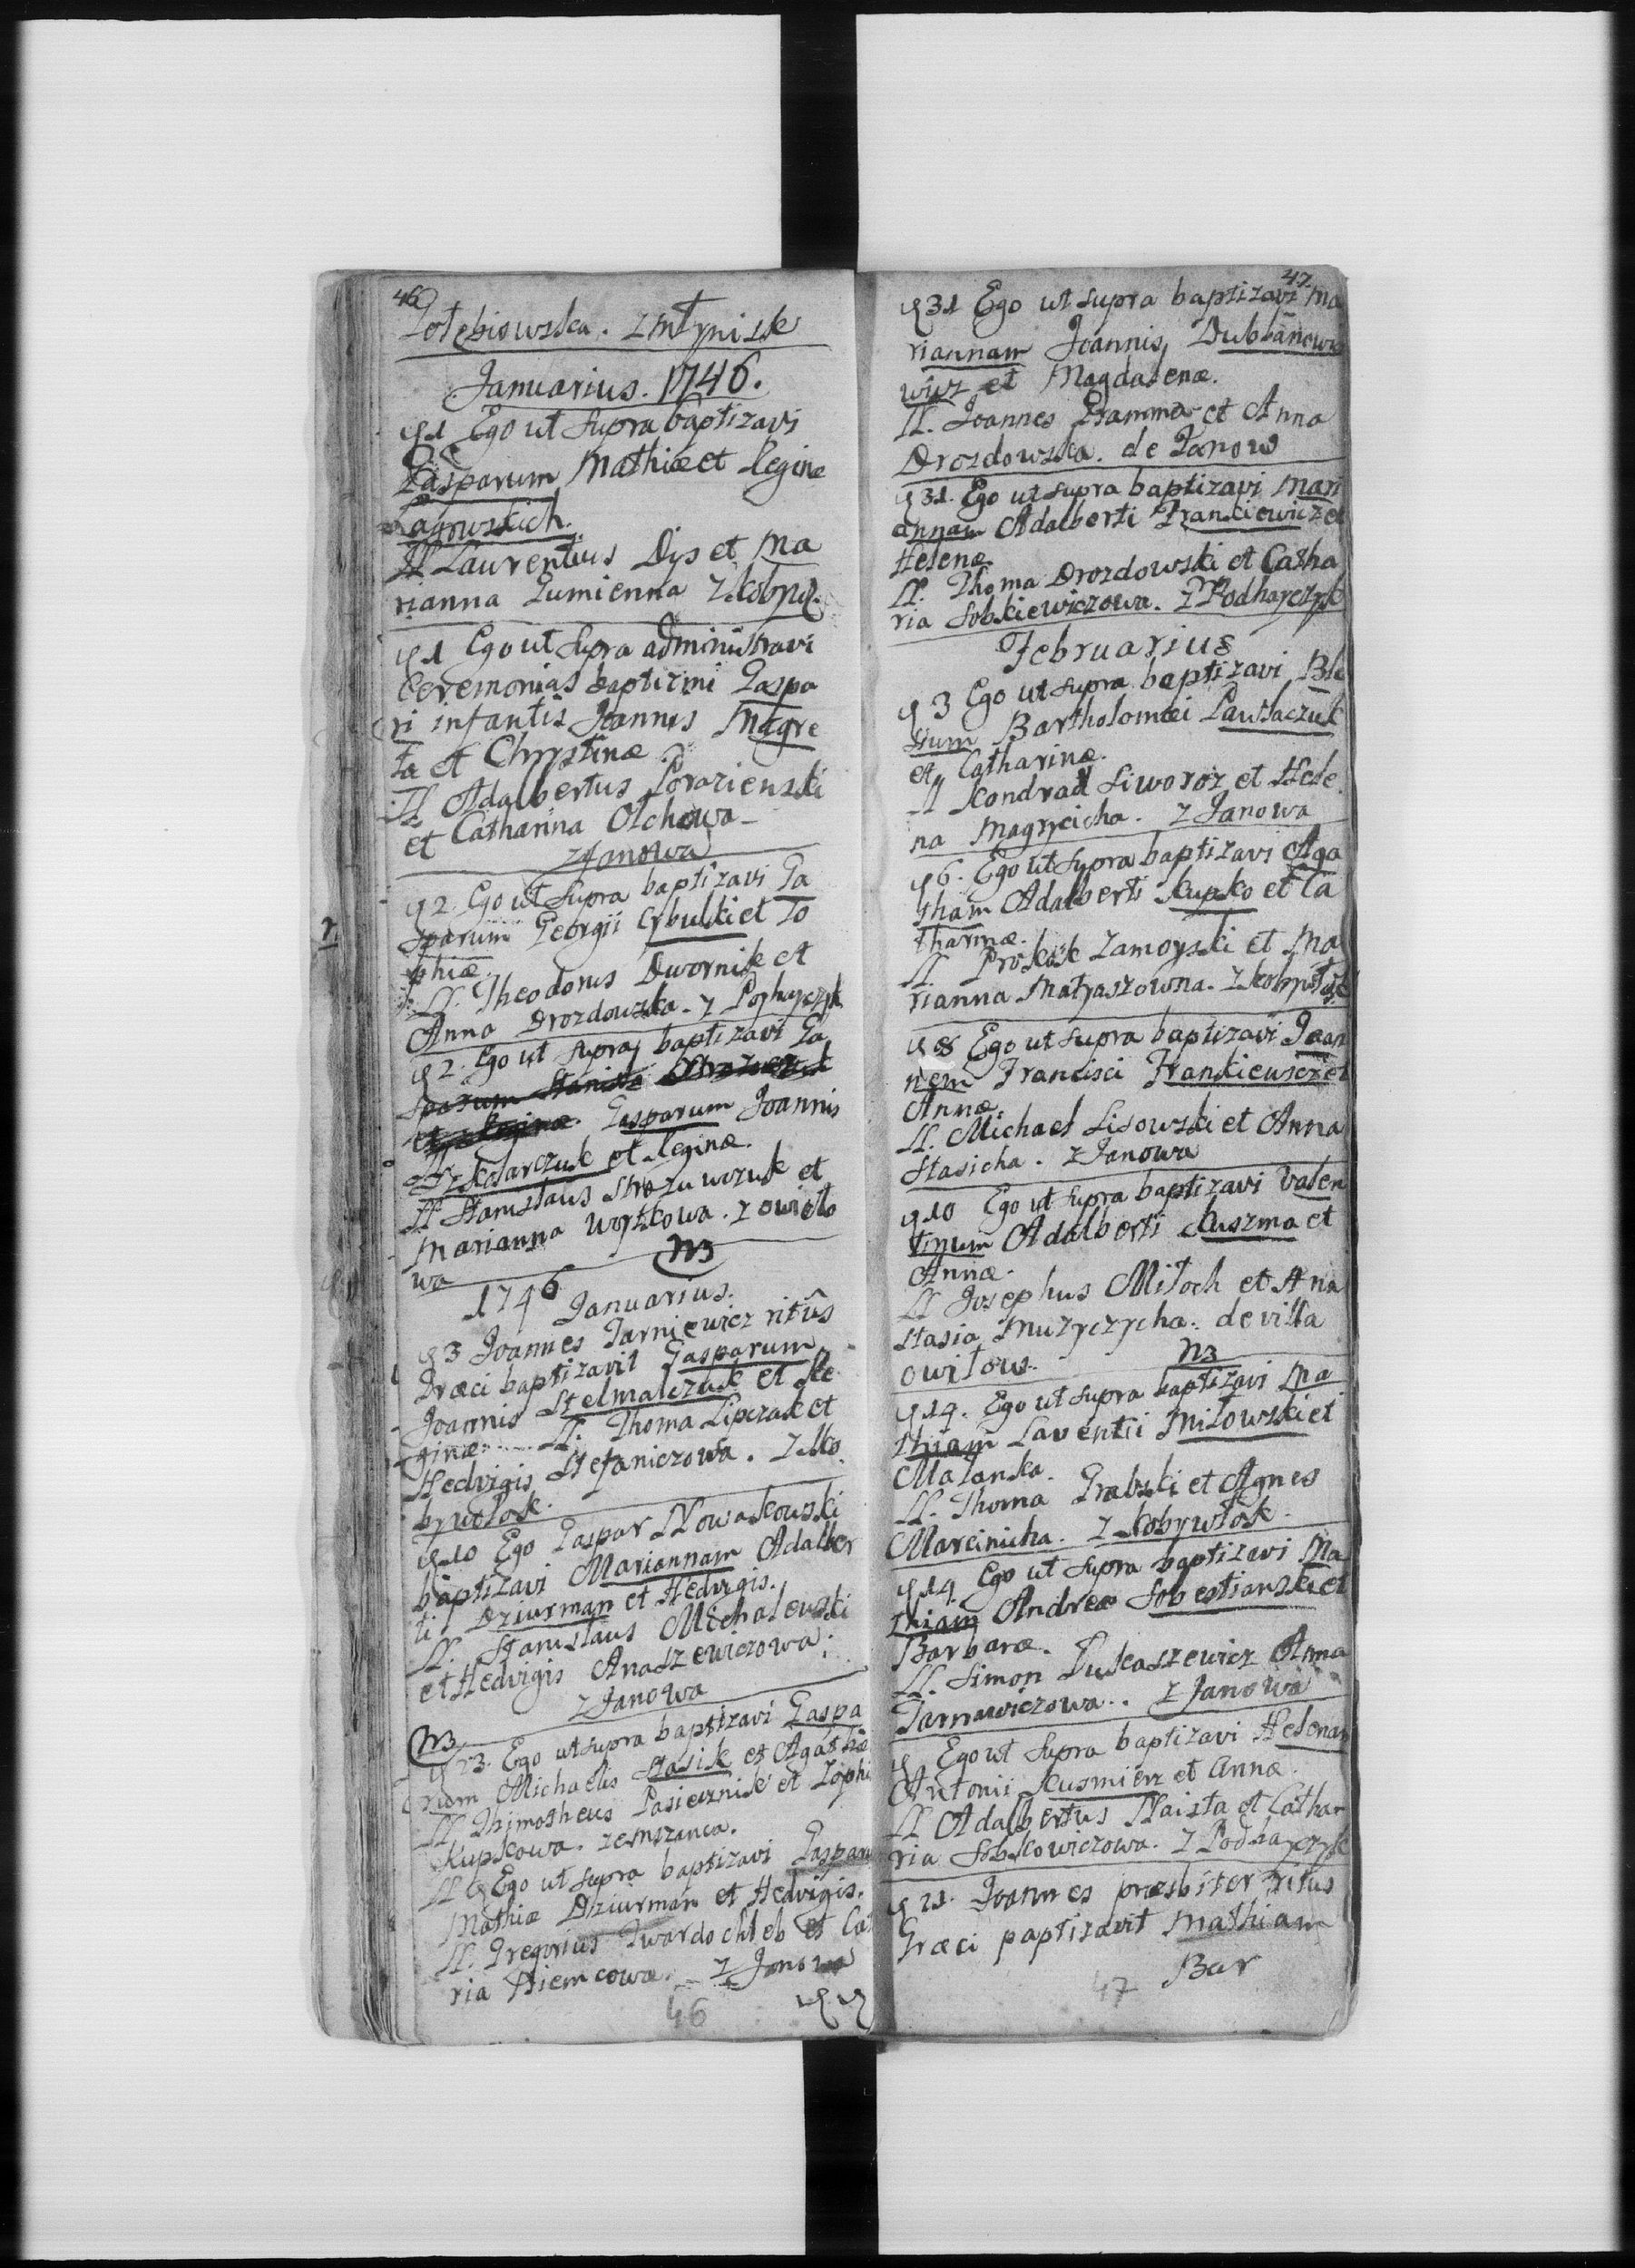 46
Gołębiowska. z Młynisk
Januarius. 1746.
d 1 Ego ut supra baptizavi
Gasparum Mathiæ et Reginæ
agowskich.
LL Laurentius Dys et Ma
rianna Zumienna z Kobyl.
d 1 Ego ut supra administravi
Ceremonias baptizmi Gaspa
ri infantis Joannis Magre
ta et Chrystinæ
LL Adalbertus Porazienski
et Catharina Olchowa
z Janowa
d 2. Ego ut supra baptizavi Ga
sparum Georgii Cybulski et Zo
phiæ.
LL. Theodorus Dwornik et
Anna Drozdowska. z Podhayczyk
d 2. Ego ut supra baptizavi Ga
sparum
et Reginæ. Gasparum Joannis
et Reginæ.
LL Stanislaus et
Marianna Woytkowa. z Owito
wa
N3
1746
Januarius.
d 3 Joannes Tarniewicz ritûs
Græci baptizavit Gasparum
Joannis Stelmalczuk et Re
ginæ. LL. Thoma Lipczak et
Hedvigis Stefaniczowa. z Ko
bywłok.
d 10 Ego Gaspar Nowakowski
baptizavi Mariannam Adalber
ti Dziurman et Hedvigis.
LL. Stanislaus Michalewski
et Hedvigis Anaszewiczowa.
z Janowa
N3
d 23. Ego ut supra baptizavi Gaspa
rum Michaelis Stasik et Agathæ
LL Thymotheus Pasiecznik et Zophi
Kupkowa. ze Mszanca.
d Ego ut supra baptizavi Gasparu
Mathiæ Dziurman et Hedvigis.
LL. Gregorius Twardochleb et Cat
ria Niemcowa. z Janowa
46
47
d 31 Ego ut supra baptizavi Ma
riannam Joannis Dubranowi
wicz et Magdalenæ.
LL. Joannes Gramma et Anna
Drozdowska. de Janow
d 31. Ego ut supra baptizavi Mari
annam Adalberti Frankiewicz et
Helenæ
LL. Thoma Drozdowski et Catha
ria Sobkiewiczowa. z Podhayczyk
Februarius
d 3 Ego ut supra baptizavi Bla
sium Bartholomæi Pawlaczuk
et Catharinæ.
LL Kondrad Siworoz et Hele
na Magrycicha. z Janowa
d 6. Ego ut supra baptizavi Aga
tham Adalberti Kupko et Ca
tharinæ.
LL. Prokok Zamoyski et Ma
rianna Matyaszowna. z Kobywłok
d 8 Ego ut supra baptizavi Joan
nem Francisci Frankiewicz et
Annæ.
LL. Michael Lisowski et Anna
Stasicha. z Janowa
d 10 Ego ut supra baptizavi Valen
tinum Adalberti Kuszma et
Annæ.
LL Josephus Mitoch et Ana
stasia Muzyczycha. de villa
Owitow.
N3
d 14. Ego ut supra baptizavi Ma
thiam Laventii Miłowski et
Malanka.
LL. Thoma Grabski et Agnes
Marcinicha. z Kobywłok.
d 14 Ego ut supra baptizavi Ma
thiam Andreæ Sobestianski et
Barbaræ.
LL. Simon Łukaszewicz Anna
Tarnawiczowa. z Janowa
d Ego ut supra baptizavi Helenam
Antonii Kusmierz et Annæ.
LL Adalbertus Naista et Catha
ria Sobkowiczowa. z Podhayczyk
d 21. Joannes præsbiter ritus
Græci paptizavit Mathiam
Bar
47